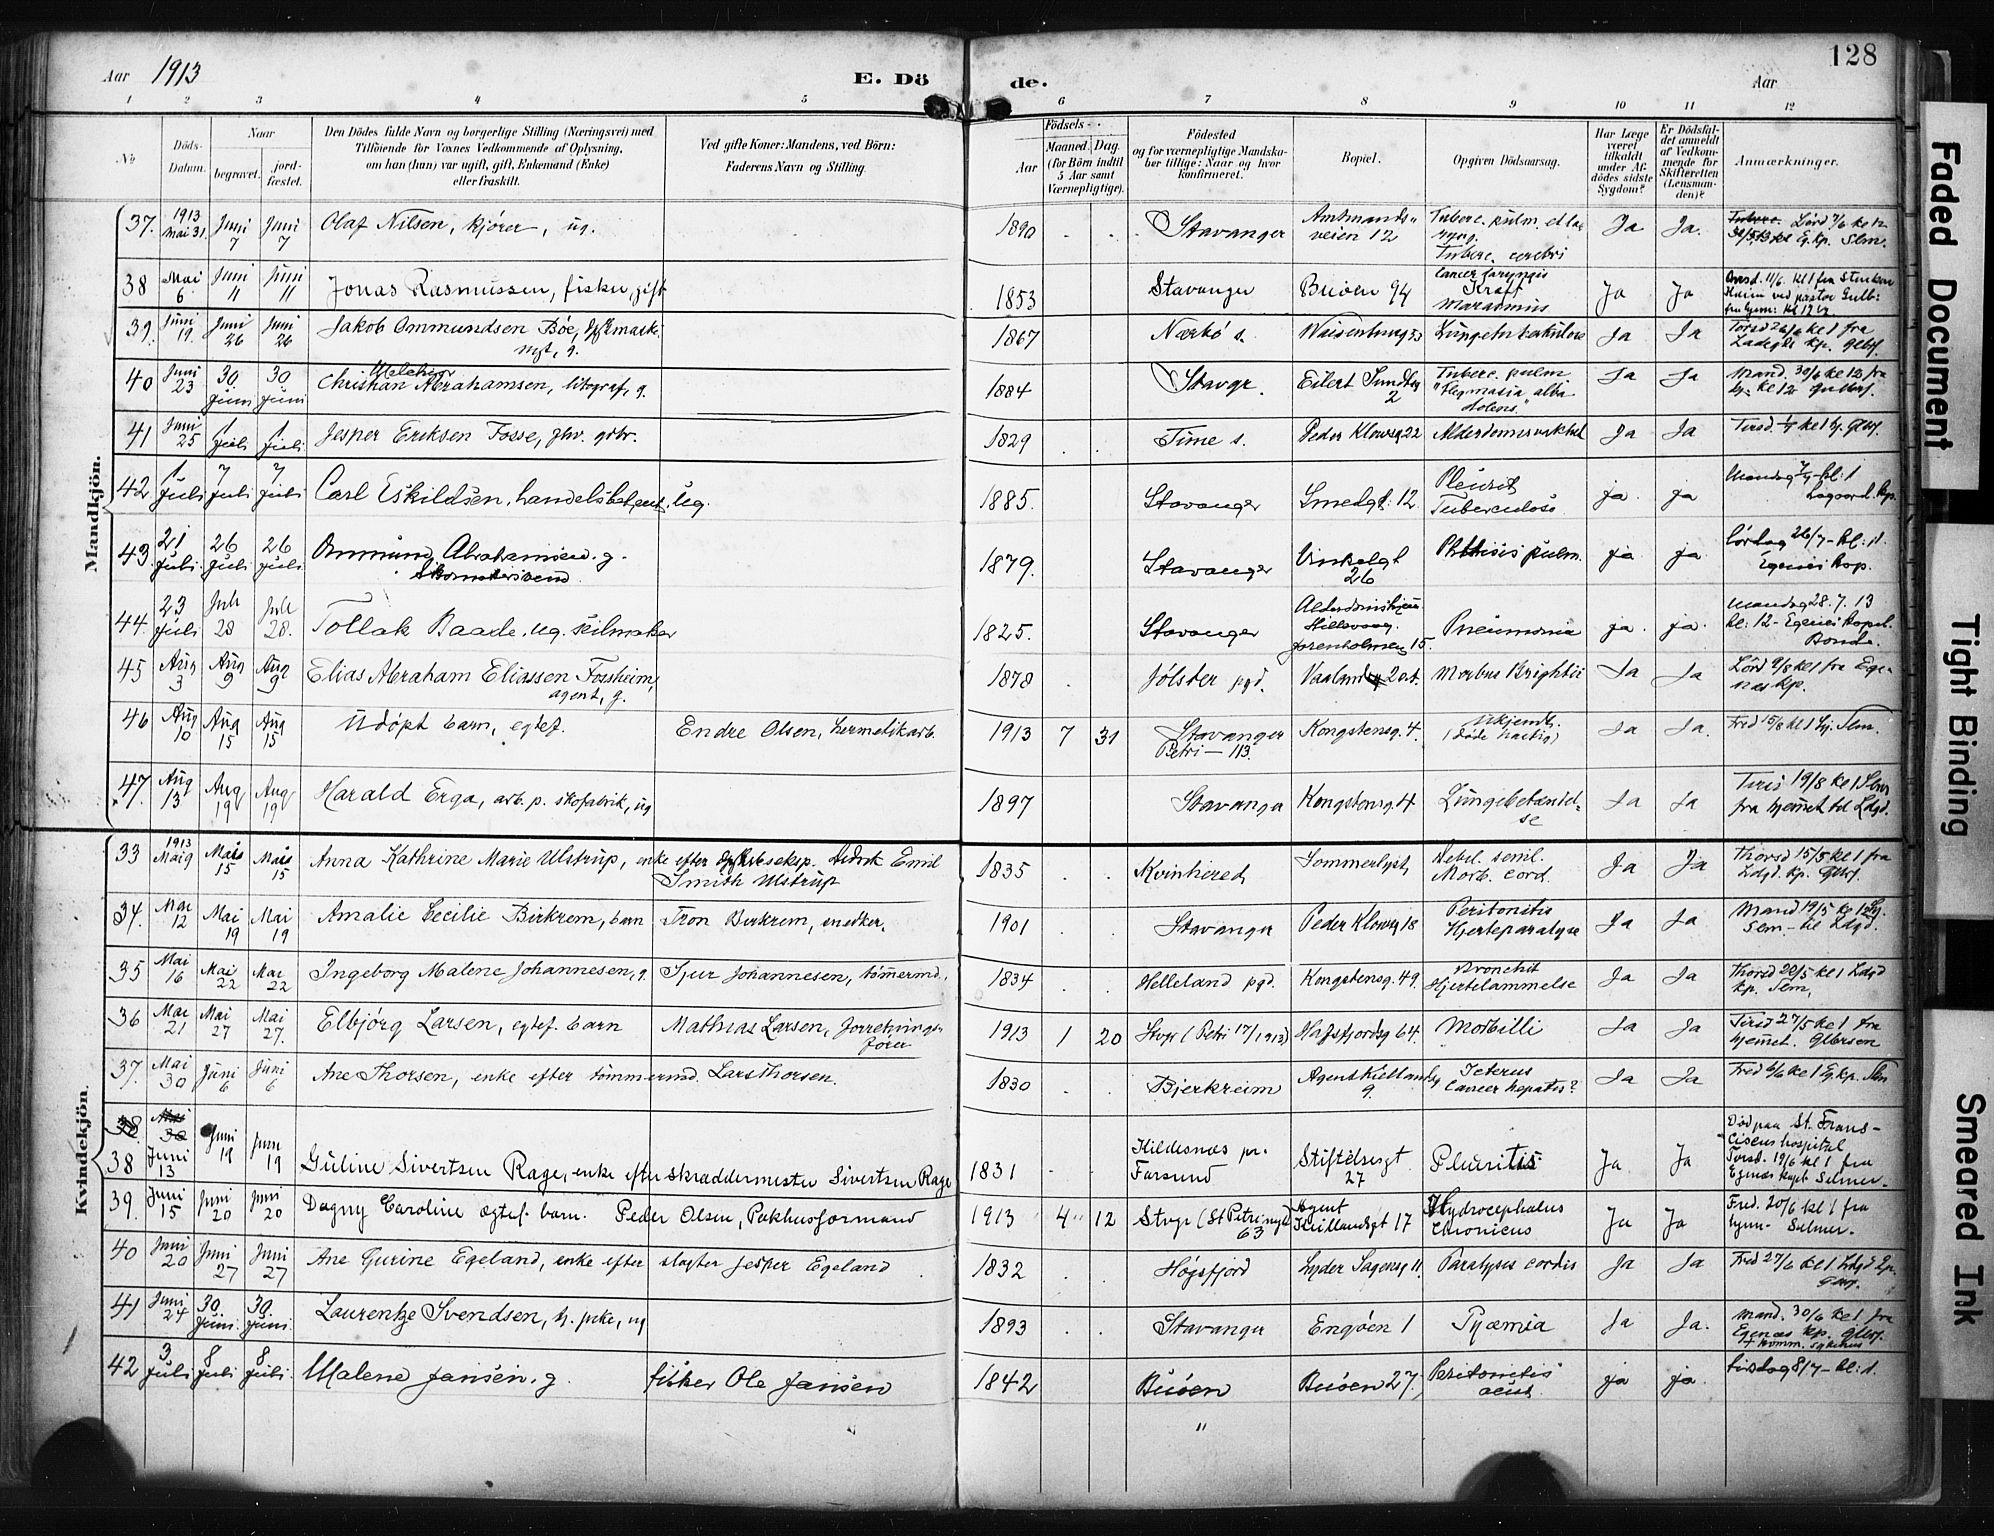 128
Aar 1913 E. Dö de. Aar
1 2 3 4 5 6 7 8 9 10 11 12
No
Döds-Datum.
Naar
begravet.
jord-fæstet.
Den Dödes fulde Navn og borgerlige Stilling (Næringsvei) med
Tilföiende for Voxnes Vedkommende af Oplysning,
om han (hun) var ugift, gift, Enkemand (Enke)
eller fraskilt.
Ved gifte Koner: Mandens, ved Börn:
Faderens Navn og Stilling.
Födsels-
Aar
Maaned. Dag.
(for Börn indtil
5 Aar samt
Værnepligtige).
Födested
og for værnepligtige Mandska-
ber tillige: Naar og hvor
konfirmeret.
Bopæl.
Opgiven Dödsaarsag.
Har Læge
været
tilkaldt
under Af-
dödes sidste
Sygdom?
Er Dödsfal-
det anmeldt
af Vedkom-
mende for
Skifteretten
(Lensman-
den)?
Anmærkninger.
Mandkjön.
37. 1913 Mai 31. Juni 7 Juni 7 Olaf Nilsen, kjörer, ug. 1890 Stavanger Amtmands-veien 12 Tuberc. pulm. et laryng. Tuberc. cerebri Ja Ja.
38 Mai 6 Juni 11 Juni 11 Jonas Rasmussen, fisker, gift 1853 Stavanger Buöen 94 Cancer laryngis Kræft Marasmus Ja Ja
39. Juni 19. Juni 26 Juni 26 Jakob Ommundsen Böe, g. 1867 Nærbö s. Waisenhusg 53 Lungetuberkulose Ja Ja Torsd 26/6 kl 1 fra Ladegds kp. Glbrs.
40 Juni 23 30. Juni 30. Juni Christian Melchior Abrahamsen, litograf, g. 1884 Stavgr. Eilert Sundtsg 2 Tuberc. pulm "Flegmasia alba dolens." Ja Ja Mand. 30/6 kl 12 fra
41 Juni 25 1 Juli 1 Juli Jesper Eriksen Fosse, fhv. gdbr. 1829 Time s. Peder Klowsg 22 Alderdomssvakhet Ja Ja Tirsd. 1/7 kl 1 hj. Glbrs.
42 1 Juli 7 Juli 7 Juli Carl Eskildsen, handelsbetjent, ug. 1885. Stavanger Smedgt. 12 Pleurit Tuberculosis ja ja Mandag 7/7 kl: 1 Lagaard kp.
43. 21 Juli 26 Juli 26 Juli Ommund Abrahamsen. g. skomakersvend 1879. Stavanger Vinkelgt 26 Phthisis pulm. ja ja Lördag 26/7 - kl: 1. Egenes kap.
44. 23 Juli Juli 28 Juli 28. Tollak Baade, ug. seilmaker 1825. Stavanger Alderdomshjem Stillevaag. Jorenholmen 15. Pneumonia ja ja. Mandag 28. 7. 13 kl: 12 - Egenes kapel. Bonde.
45 Aug 3 Aug 9 Aug 9 Elias Abraham Eliassen Fossheim, agent, g. 1878 Jölster pgd. Vaalandsg 20 t. Morbus Brightii Ja Ja Lörd 9/8 kl 1 fra Egenæs kp.
46 Aug 10 Aug 15 Aug 15 Udöpt barn, egtef. Endre Olsen, hermetikarb. 1913 7 31 Stavanger Petri - 113. Kongstensg. 4. Ukjendt. (döde hastig) Ja Ja. Fred 15/8 kl 1 hj. Slm.
47. Aug 13 Aug 19 Aug 19 Harald Erga, arb. p. skofabrik, ug 1897 Stavanger Kongstensg. 4 Lungebetændelse Ja Ja Tirs 19/8 kl 1 Slm fra hjemmet til Ldgd.
Kvindekjön.
33 1913 Mai 9 Mais 15 Mais 15 Anna Kathrine Marie Ulstrup, enke efter Fredrik Emil Smith Ulstrup 1835 Kvinhered Sommerlyst Debil. senil. Morb. cord. Ja Ja Thorsd 15/5 kl 1 fra Ldgd. kp. Glbrs.
34. Mai 12 Mai 19 Mai 19 Amalie Cecilie Birkrem, barn Tron Birkrem, snedker. 1901 Stavanger Peder Klowsg 18 Peritonitis Hjerteparalyse Ja Ja Mand 19/5 kl 12 hj. Slm. - til Ldgd.
35 Mai 16 Mai 22 Mai 22 Ingeborg Malene Johannesen, g. Sjur Johannesen, tömmermd. 1834 Helleland pgd. Kongstensg. 49. Bronchit Hjertelammelse Ja Ja Thorsd 22/5 kl 1 Ldgd kp. Slm.
36 Mai 21 Mai 27 Mai 27. Elbjörg Larsen, egtef. barn Mathias Larsen, forretningsförer 1913 1 20 Stvgr (Petri 17/1913) Hafsfjordsg 64. Morbilli Ja Ja Tirsd 27/5 kl 1 fra hjemmet. Glbrsen
37. Mai 30 Juni 6 Juni 6 Ane Thorsen, enke efter tömmermd. Lars Thorsen. 1830 Bjerkreim Agent Kiellandsg 9. Icterus Cancer hepatis? Ja Ja Fred 6/6 kl 1 Eg. kp. Slm
38. Mai 30
38 Juni 13 Juni 19 Juni 19 Guline Sivertsen Rage, enke efter skræddermester Sivertsen Rage 1831 Kildesnæs pr. Farsund Stiftelsesgt 27 Pleuritis Ja Ja Död paa St. Franciscus hospital Torsd. 19/6 kl 1 fra Egenæs kapel Selmer.
39. Juni 15 Juni 20 Juni 20 Dagny Caroline egtef. barn. Peder Olsen, Pakhusformand 1913 4 12 Stvgr (St Petri 63 Agent Kiellandsgt 17 Hydrocephalus Chronicus Ja Ja Fred. 20/6 kl 1 fra hjem - Selmer.
40 Juni 20 Juni 27 Juni 27 Ane Gurine Egeland, enke efter slagter Jesper Egeland 1832 Högsfjord Lyder Sagensg 11. Paralysis cordis Ja Ja Fred 27/6 kl 1 Ldgd kp.
41 Juni 24 30. Juni 30. Juni. Laurentze Svendsen, tj. pike, ug 1893 Stavanger Engöen 1 Pyæmia Ja Ja. Mand. 30/6 kl 1 fra Egenæs kp. Glbrs. + komm. sykehus
42 3 Juli 8 Juli 8 Juli Malene Jansen. g. fisker Ole Jansen 1842 Buöen Buöen 27. Peritonitis acut. ja ja. Tirsdag 8/7 - kl: 1.
"
Faded Document
Tight Binding
Smeared Ink